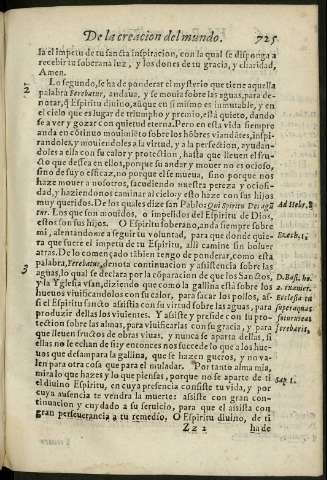 De la creacion del mundo. 725
la el impetu de tu sancta inspiracion, con la qual se disponga a
recebir tu soberana luz, y los dones de tu gracia, y charidad,
Amen.
2 Lo segundo, se ha de ponderar el mysterio que tiene aquella
palabra Ferebatur, andaua, y se mouia sobre las aguas, para de-
notar, q̃ el Espiritu diuino, aũque en si mismo es inmutable, y en
el cielo que es lugar de triumpho y premio, està quieto, dando
se a ver y gozar con quietud eterna. Pero en esta vida siempre
anda en cõtinuo mouimiẽto sobre los hõbres viandãtes, inspi-
randoles, y mouiendoles a la virtud, y a la perfection, ayudan-
doles a ella con su calor y protection, hasta que lleuen el fru-
cto que dessea en ellos, porque su andar y mouer no es ocioso,
sino de suyo efficaz, no porque el se mueua, sino porque nos
haze mouer a nosotros, sacudiendo nuestra pereza y ociosi-
dad, y haziendonos caminar al cielo: y esto haze con sus hijos
muy queridos. De los quales dize san Pablo: Qui Spiritu Dei agũ
tur. Los que son mouidos, o impelidos del Espiritu de Dios,
estos son sus hijos. O Espiritu soberano, anda siempre sobre
mi, alentandome a seguir tu voluntad, para que donde quie-
ra que fuere el impetu de tu Espiritu, alli camine sin boluer
atras. De lo començado tãbien tengo de ponderar, como esta
palabra, Ferebatur, denota continuacion y assistencia sobre las
3 aguas, lo qual se declara por la cõparacion de que los Sanctos,
y la Yglesia vsan, diziendo que como la gallina està sobre los
hueuos viuificandolos con su calor, para sacar los pollos, as-
si el Espiritu sancto assistia con su virtud sobre las aguas, para
produzir dellas los viuientes. Y assiste y preside con su pro-
tection sobre las almas, para viuificarlas con su gracia, y para
que lleuen fructos de obras viuas, y nunca se aparta dellas, si
ellas no le echan de si: y entonces nos succede lo que a los hue-
uos que desampara la gallina, que se hazen gueros, y no va-
len para otra cosa que para el muladar. Por tanto alma mia,
mira lo que hazes y lo que piensas, porque no se aparte de ti
el diuino Espiritu, en cuya presencia consiste tu vida, y por
cuya ausencia te vendra la muerte: assiste con gran con-
tinuacion y cuydado a su seruicio, para que el assista con
gran perseuerancia a tu remedio. O Espiritu diuino, de ti
Zz 2 ha de
Ezech. 1.
D. Basi. ho.
2. examer.
Ecclesia in
Sap. 1.